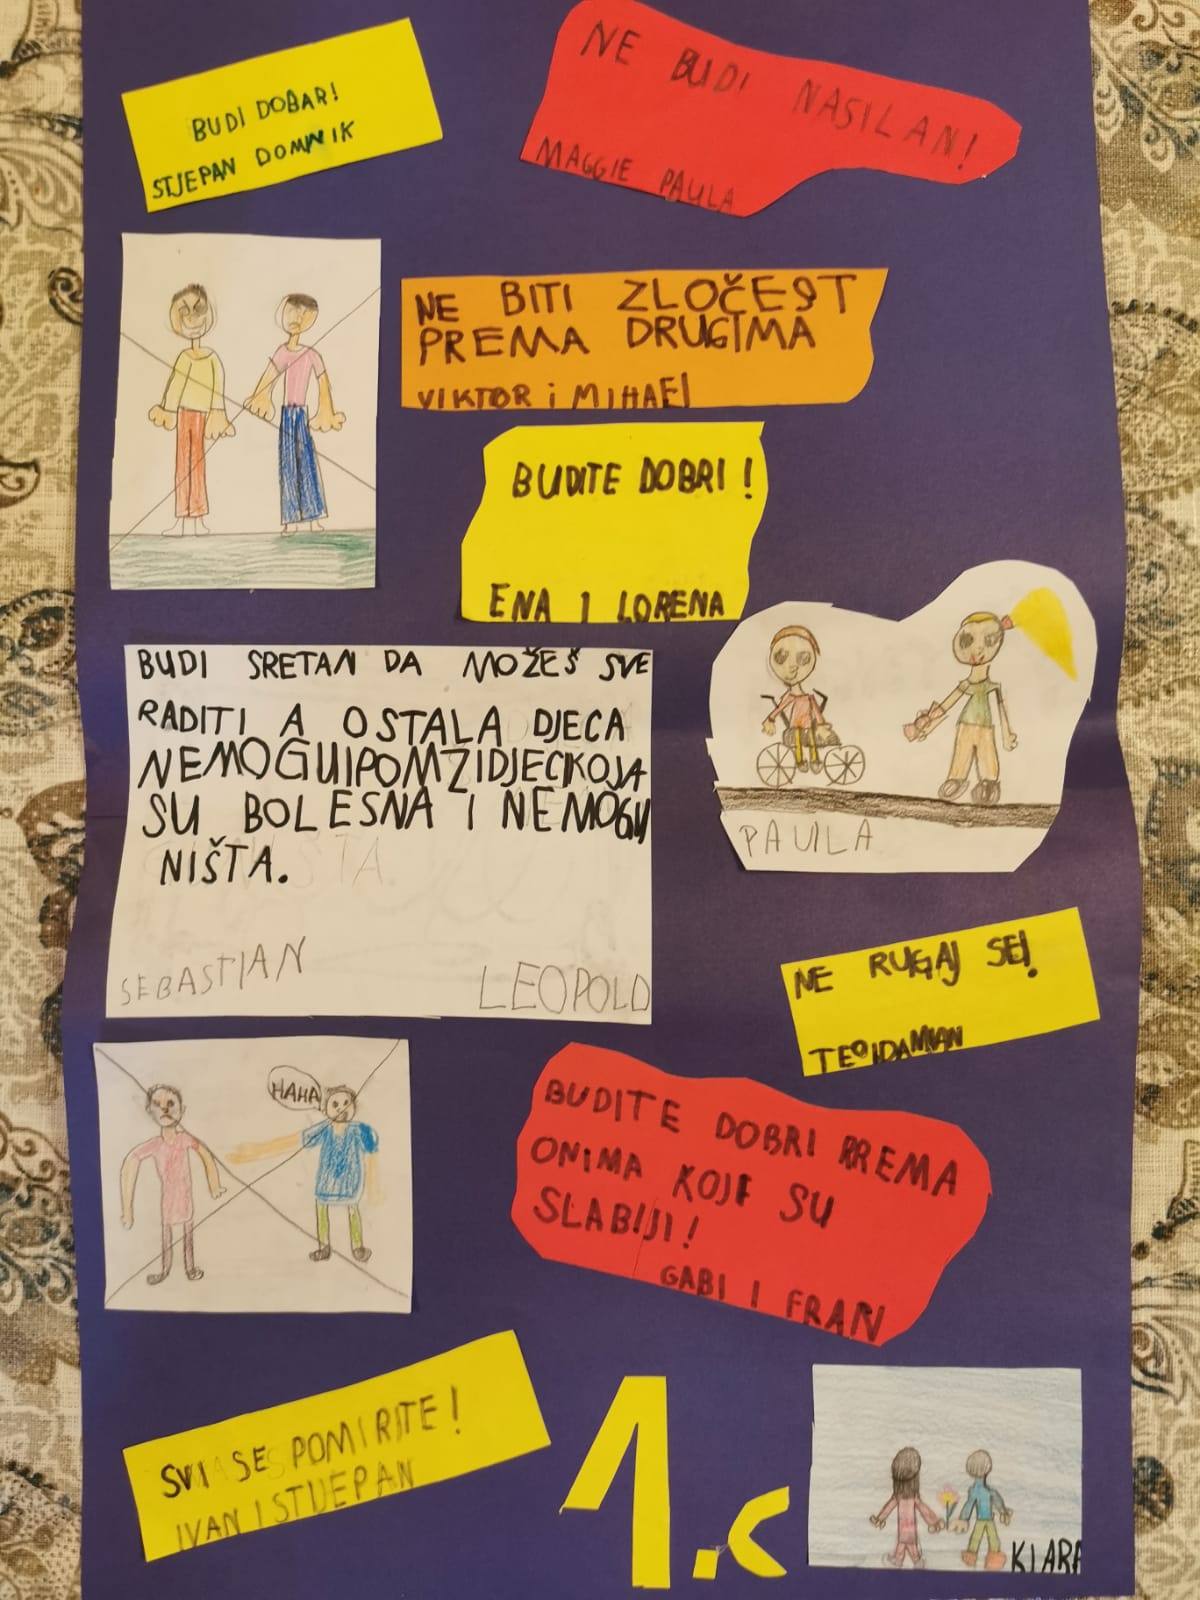 BUDI DOBAR!
STJEPAN DOMNIK
NE BUDI NASILAN!
MAGGIE PAULA
NE BITI ZLOČEST
PREMA DRUGIMA
VIKTOR i MIHAEl
BUDITE DOBRI!
ENA I LORENA
BUDI SRETAN DA MOŽEŠ SVE
RADITI A OSTALA DJECA
NEMOGUIPOMZIDJECIKOJA
SU BOLESNA I NEMOGU
NIŠTA.
SEBASTIAN LEOPOLD
PAULA
NE RUGAJ SE!
TEOIDAMIAN
HAHA
BUDITE DOBRI PREMA
ONIMA KOJI SU
SLABIJI!
GABI I FRAN
SVI SE POMIRITE!
IVAN I STJEPAN
1.c
KLARA